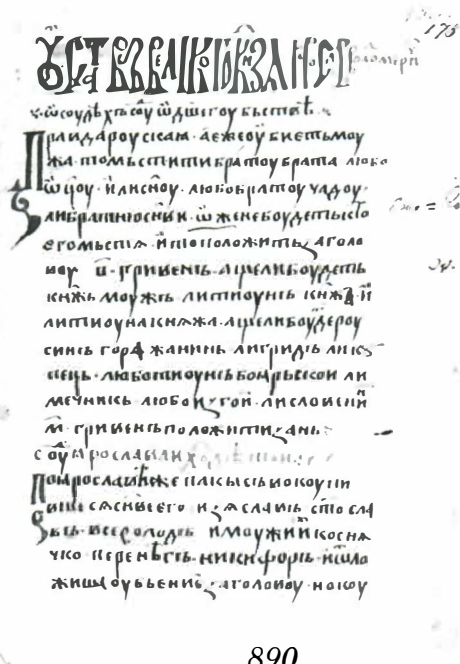 ОУСТАВЪ ВЕЛИКОГО КНЗѦ
ѡ соудѣхъ ѡ дш҃егоубьствѣ
Правда роусскаꙗ· аже оубиеть моу
жа· то мьстити братоу брата любо
ѡц҃оу· или сн҃оу· любо братоу чадоу·
ли братню сн҃ви· ѡже не боудеть кто
его мьстꙗ· и то положить за голо
воу· п҃· гривенъ· аще ли боудеть
кнжь моужь ли тиоунъ кнжа· и
ли тиоуна кнѧжа· аще ли боудеть роу
синъ горожанинъ ли гридь ли коу
пець· любо тиоунъ боꙗрьскои ли
мечникъ любо изгои· ли словенин
м҃· гривенъ положити за нь·
с оу ꙗрославлих
По ꙗрославѣ же пакы съвокоупи
вшесѧ сн҃ве его изѧславъ ст҃осла
въ· всеволодъ и моужи ихъ косна
чко перенѣгъ· никифоръ· и ѿло
жиша оубьение· за головоу· но коу
890